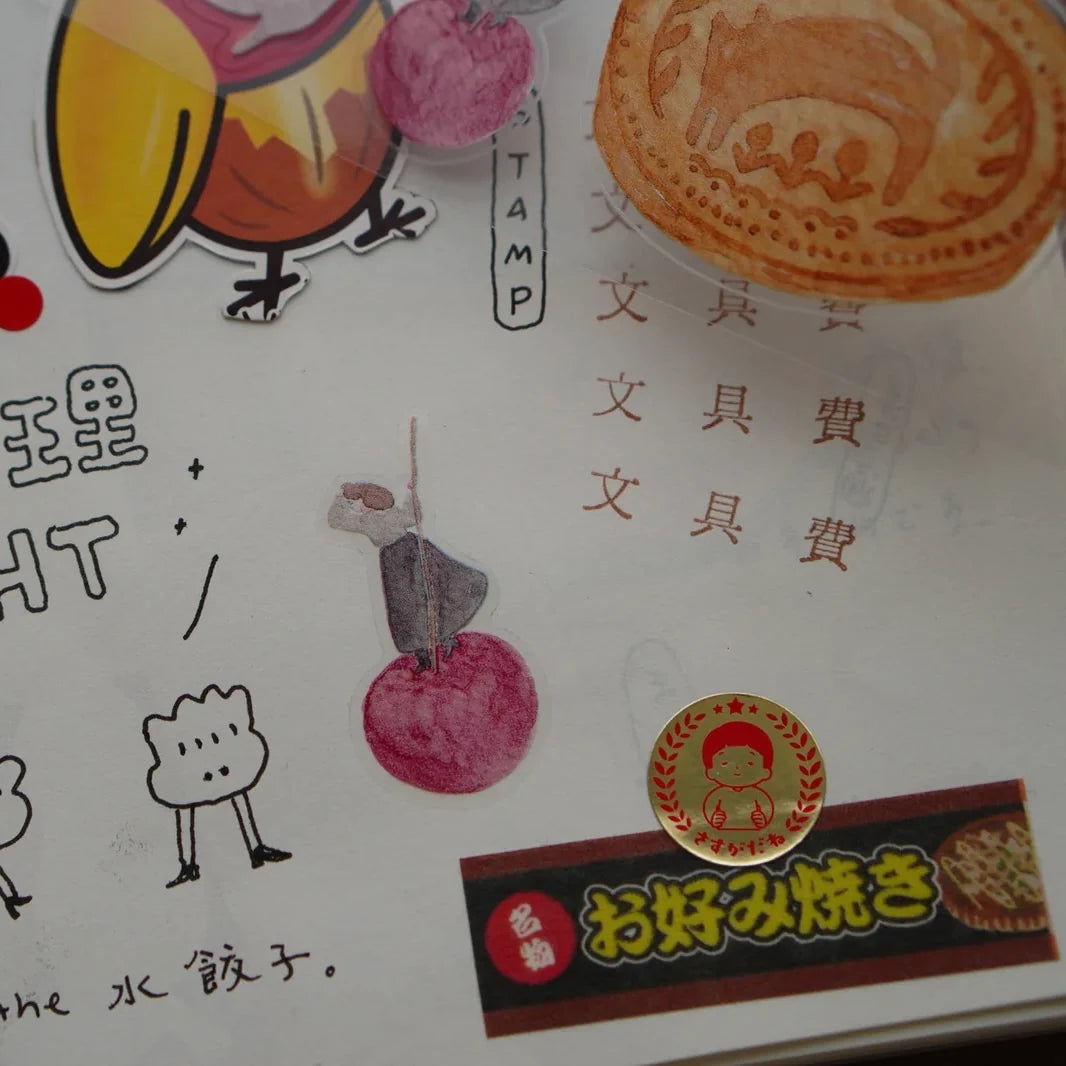 TAMP
文 具 費
文 具 費
文 具 費
理
HT
さすがだね
名物
お好み焼き
the 水餃子。